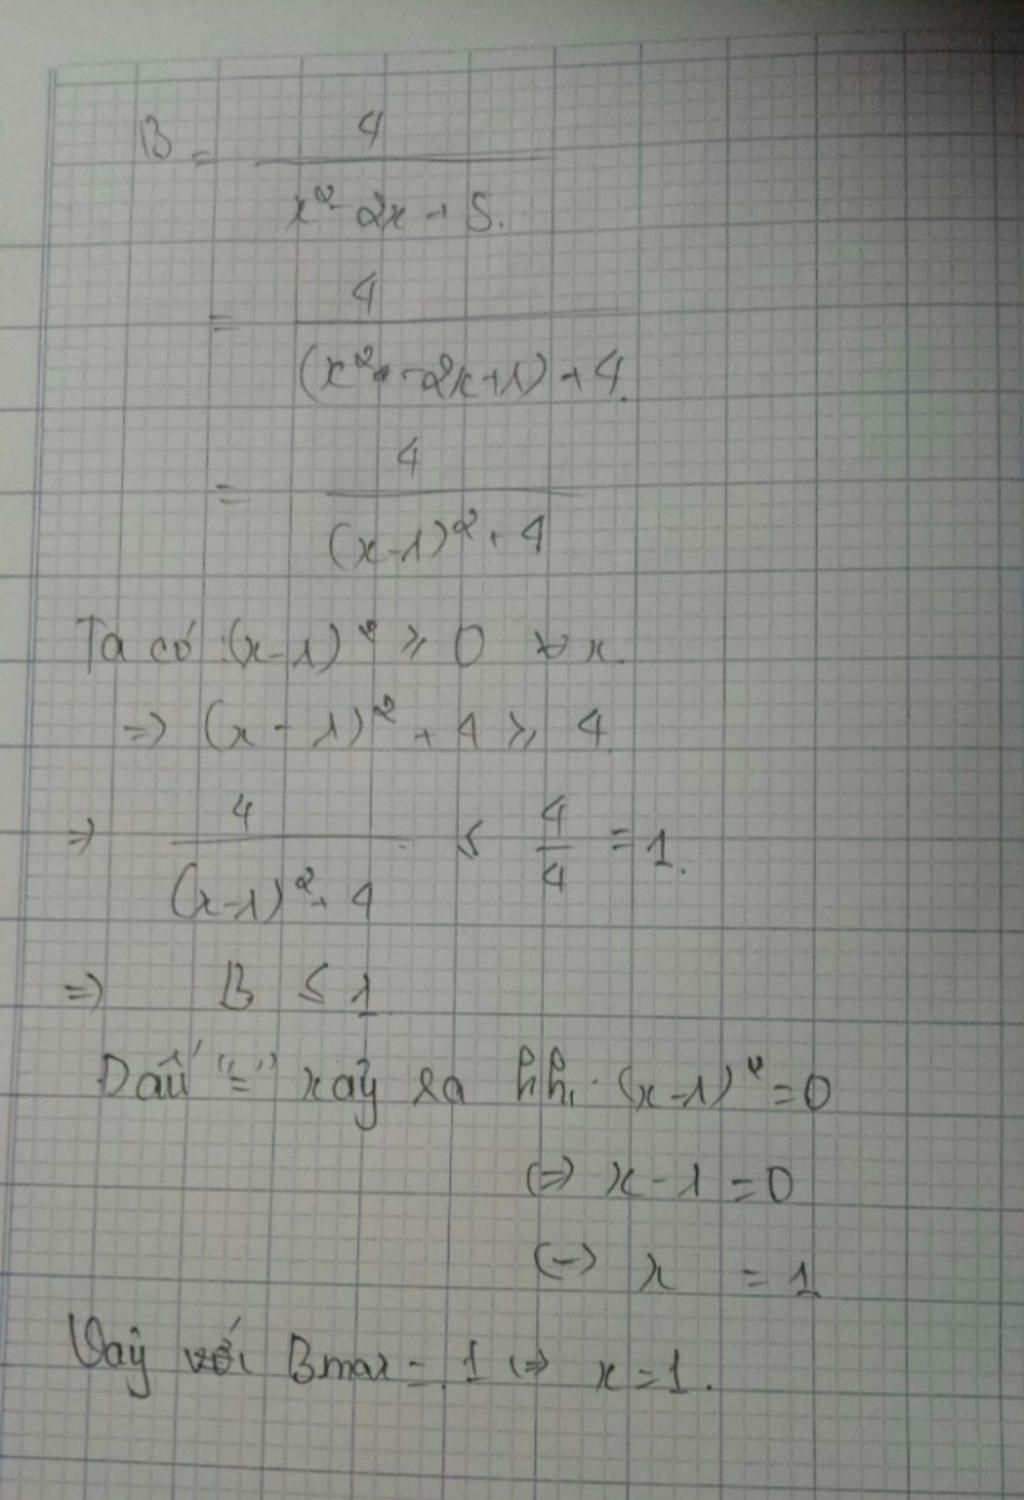 B = 4 / (x² - 2x + 5.)
= 4 / ((x² - 2x + 1) + 4.)
= 4 / ((x-1)² + 4)
Ta có : (x-1)² ≥ 0 ∀ x.
=> (x - 1)² + 4 ≥ 4.
=> 4 / ((x-1)² + 4) ≤ 4/4 = 1.
=> B ≤ 1
Dấu "=" xảy ra khi (x-1)² = 0
<=> x - 1 = 0
<=> x = 1
Vậy với Bmax = 1 <=> x = 1.